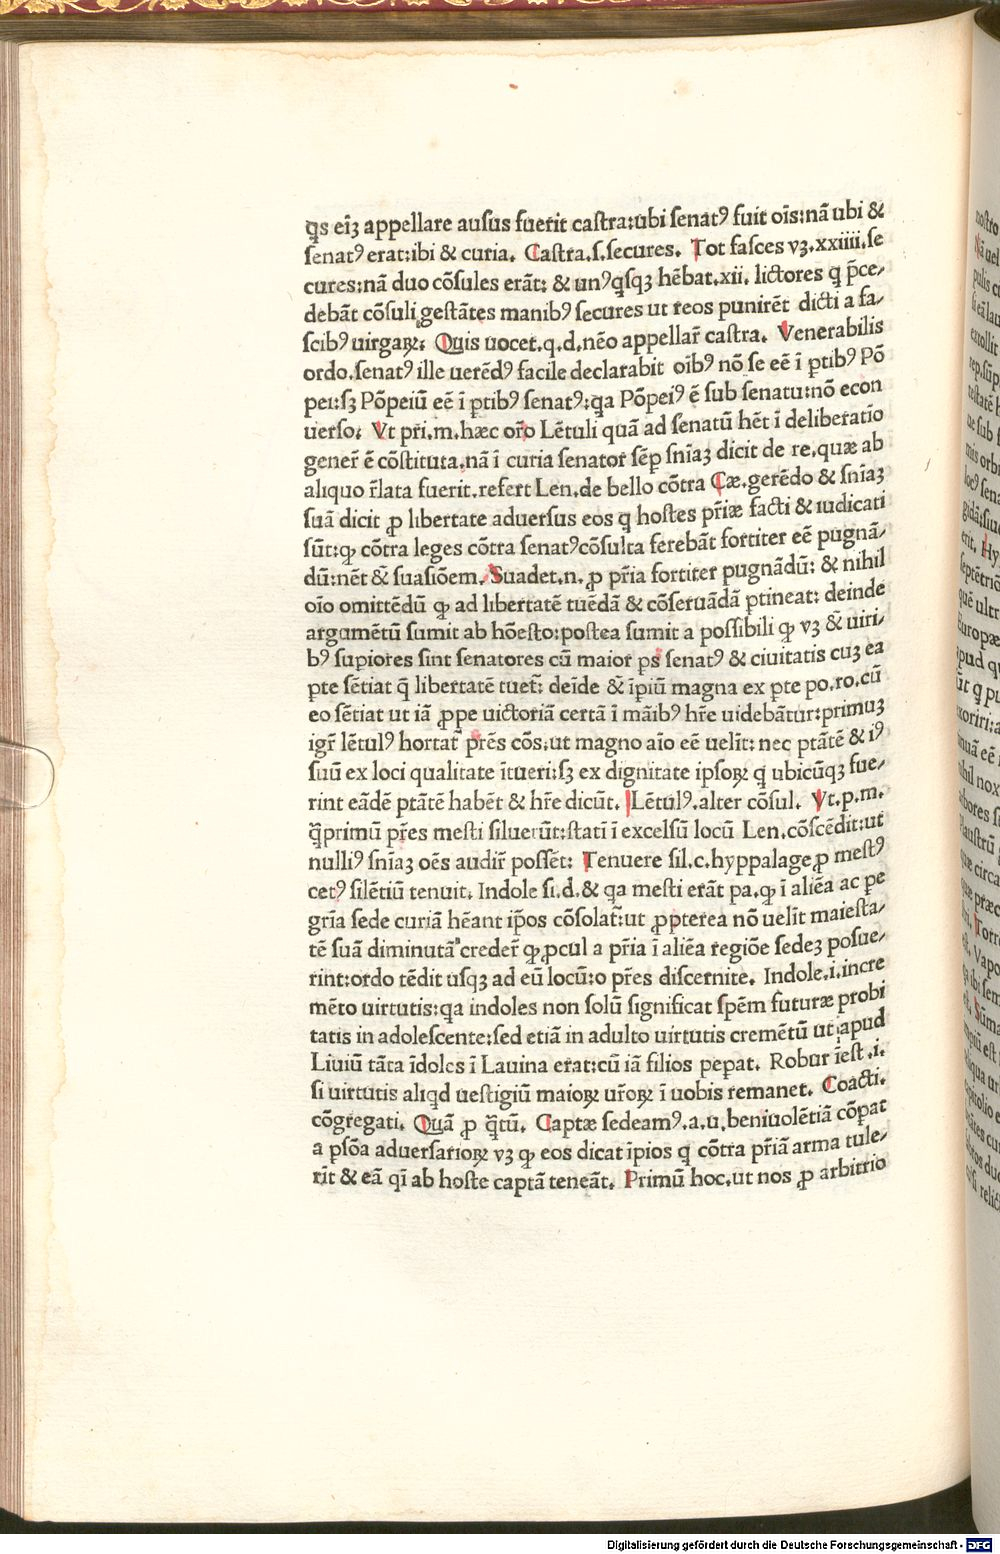 qs eı̄ꝫ appellare ausus fuerit castra:ubi senatꝰ fuit oı̄s:nā ubi &
senatꝰ erat:ibi & curia. Castra.s.secures. Tot fasces vꝫ.xxiiii.se
cures:nā duo cōsules erāt: & unꝰqsqꝫ hēbat.xii. lictores q p̄ce/
debāt cōsuli gestātes manibꝰ secures ut reos punirēt dicti a fa/
scibꝰ uirgaꝝ: Quis uocet.q.d.nēo appellar̄ castra. Venerabilis
ordo.senatꝰ ille uerēdꝰ facile declarabit oı̄bꝰ nō se eē ı̄ ꝑtibꝰ Pō
pei:sꝫ Pōpeiū eē ı̄ ꝑtibꝰ senatꝰ:qa Pōpeiꝰ ē sub senatu:nō econ
uerso: Vt pr̄i.m.hæc or̄o Lētuli quā ad senatū hēt ı̄ deliberatı̄o
gener̄ ē cōstituta.nā ı̄ curia senator̄ sēꝑ sn̄iaꝫ dicit de re.quæ ab
aliquo r̄lata fuerit.refert Len.de bello cōtra Cæ.gerēdo & sn̄iaꝫ
suā dicit ꝓ libertate aduersus eos q hostes pr̄iæ facti & iudicati
sūt:qꝫ cōtra leges cōtra senatꝰcōsulta ferebāt fortiter eē pugnā/
dū:nēt & suasiōem. Suadet.n.ꝓ pr̄ia fortiter pugnādū: & nihil
oı̄o omittēdū qꝫ ad libertatē tuēdā & cōseruādā ꝑtineat: deinde
argumētū sumit ab hōesto:postea sumit a possibili qꝫ vꝫ & uiri/
bꝰ supiores sint senatores cū maior ps senatꝰ & ciuitatis cuꝫ ea
ꝑte sētiat q̄ libertatē tuet̄: deı̄de & ı̄ꝑiū magna ex ꝑte po.ro.cū
eo sētiat ut iā ꝓpe uictoriā certā ı̄ māibꝰ hr̄e uidebātur:primuꝫ
igr̄ lētulꝰ hortat̄ pr̄es cōs.ut magno aı̄o eē uelı̄t: nec ptātē & iꝰ
suū ex loci qualitate ı̄tueri:sꝫ ex dignitate ipsoꝝ q ubicūqꝫ fue/
rint eādē ptātē habēt & hr̄e dicūt. Lētulꝰ.alter cōsul. Vt.p.m.
q̄primū pr̄es mesti siluerūt:statı̄ ı̄ excelsū locū Len.cōscēdit:ut
nulliꝰ sn̄iaꝫ oēs audir̄ possēt: Tenuere sil.c.hyppalage ꝓ mestꝰ
cetꝰ silētiū tenuit. Indole si.d.& qa mesti erāt pa.qꝫ ı̄ aliēa ac pe
grı̄a sede curiā hēant ip̄os cōsolat̄:ut ꝓpterea nō uelı̄t maiesta/
tē suā diminutā creder̄ qꝫ ꝓcul a pr̄ia ı̄ aliēa regiōe sedeꝫ posue/
rint:ordo tēdit usqꝫ ad eū locū:o pr̄es discernite. Indole.i.incre
mēto uirtutis:qa indoles non solū significat spēm futuræ probi
tatis in adolescente:sed etiā in adulto uirtutis cremētū ut apud
Liuiū tāta ı̄doles ı̄ Lauina erat:cū iā filios peꝑat. Robur ı̄est.i.
si uirtutis aliqd uestigiū maioꝝ ur̄oꝝ ı̄ uobis remanet. Coacti.
cōgregati. Quā ꝓ q̄tū. Captæ sedeamꝰ.a.u.beniuolētiā cōꝑat
a ꝑsōa aduersarioꝝ vꝫ qꝫ eos dicat ı̄pios q cōtra pr̄iā arma tule/
rı̄t & eā qı̄ ab hoste captā teneāt. Primū hoc.ut nos ꝓ arbitrio
Digitalisierung gefördert durch die Deutsche Forschungsgemeinschaft - DFG